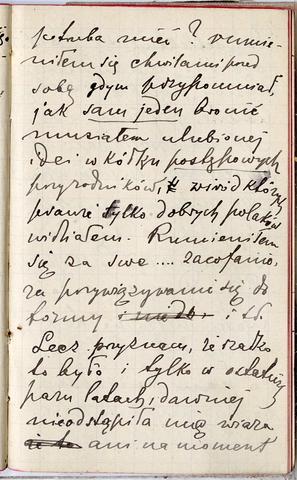 potrzeba mieć? rumie-
niłem się chwilami przed
sobą gdym przypominał,
jak sam jeden bronić
musiałem ulubionej
idei w kółku postępowych
przyrodników, wśród których
prawie tylko dobrych polaków
widziałem. Rumieniłem
się za swe .... zacofanie,
za przywiązywanie się do
formy i t.d.
Lecz przyznam, że rzadko
to było i tylko w ostatnich
paru latach, dawniej
nieodstąpiła mię wiara
ani na moment